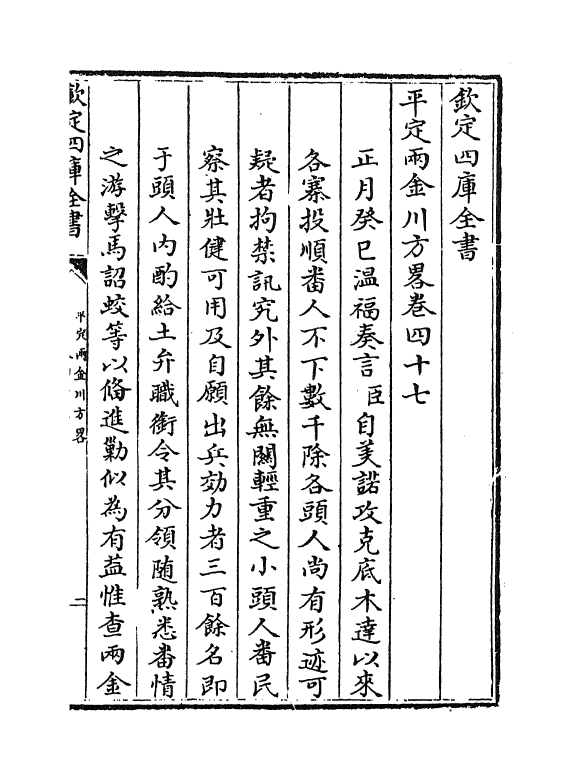 欽定四庫全書
平定兩金川方畧卷四十七
正月癸巳温福奏言臣自美諾攻克底木達以來
各寨投順番人不下數千除各頭人尚有形迹可
疑者拘禁訊究外其餘無關輕重之小頭人番民
察其壯健可用及自願出兵効力者三百餘名即
于頭人内酌給土弁職銜令其分領随熟悉番情
之游擊馬詔蛟等以俻進勦似為有益惟查兩金
欽定四庫全書
平定兩金川方畧
二